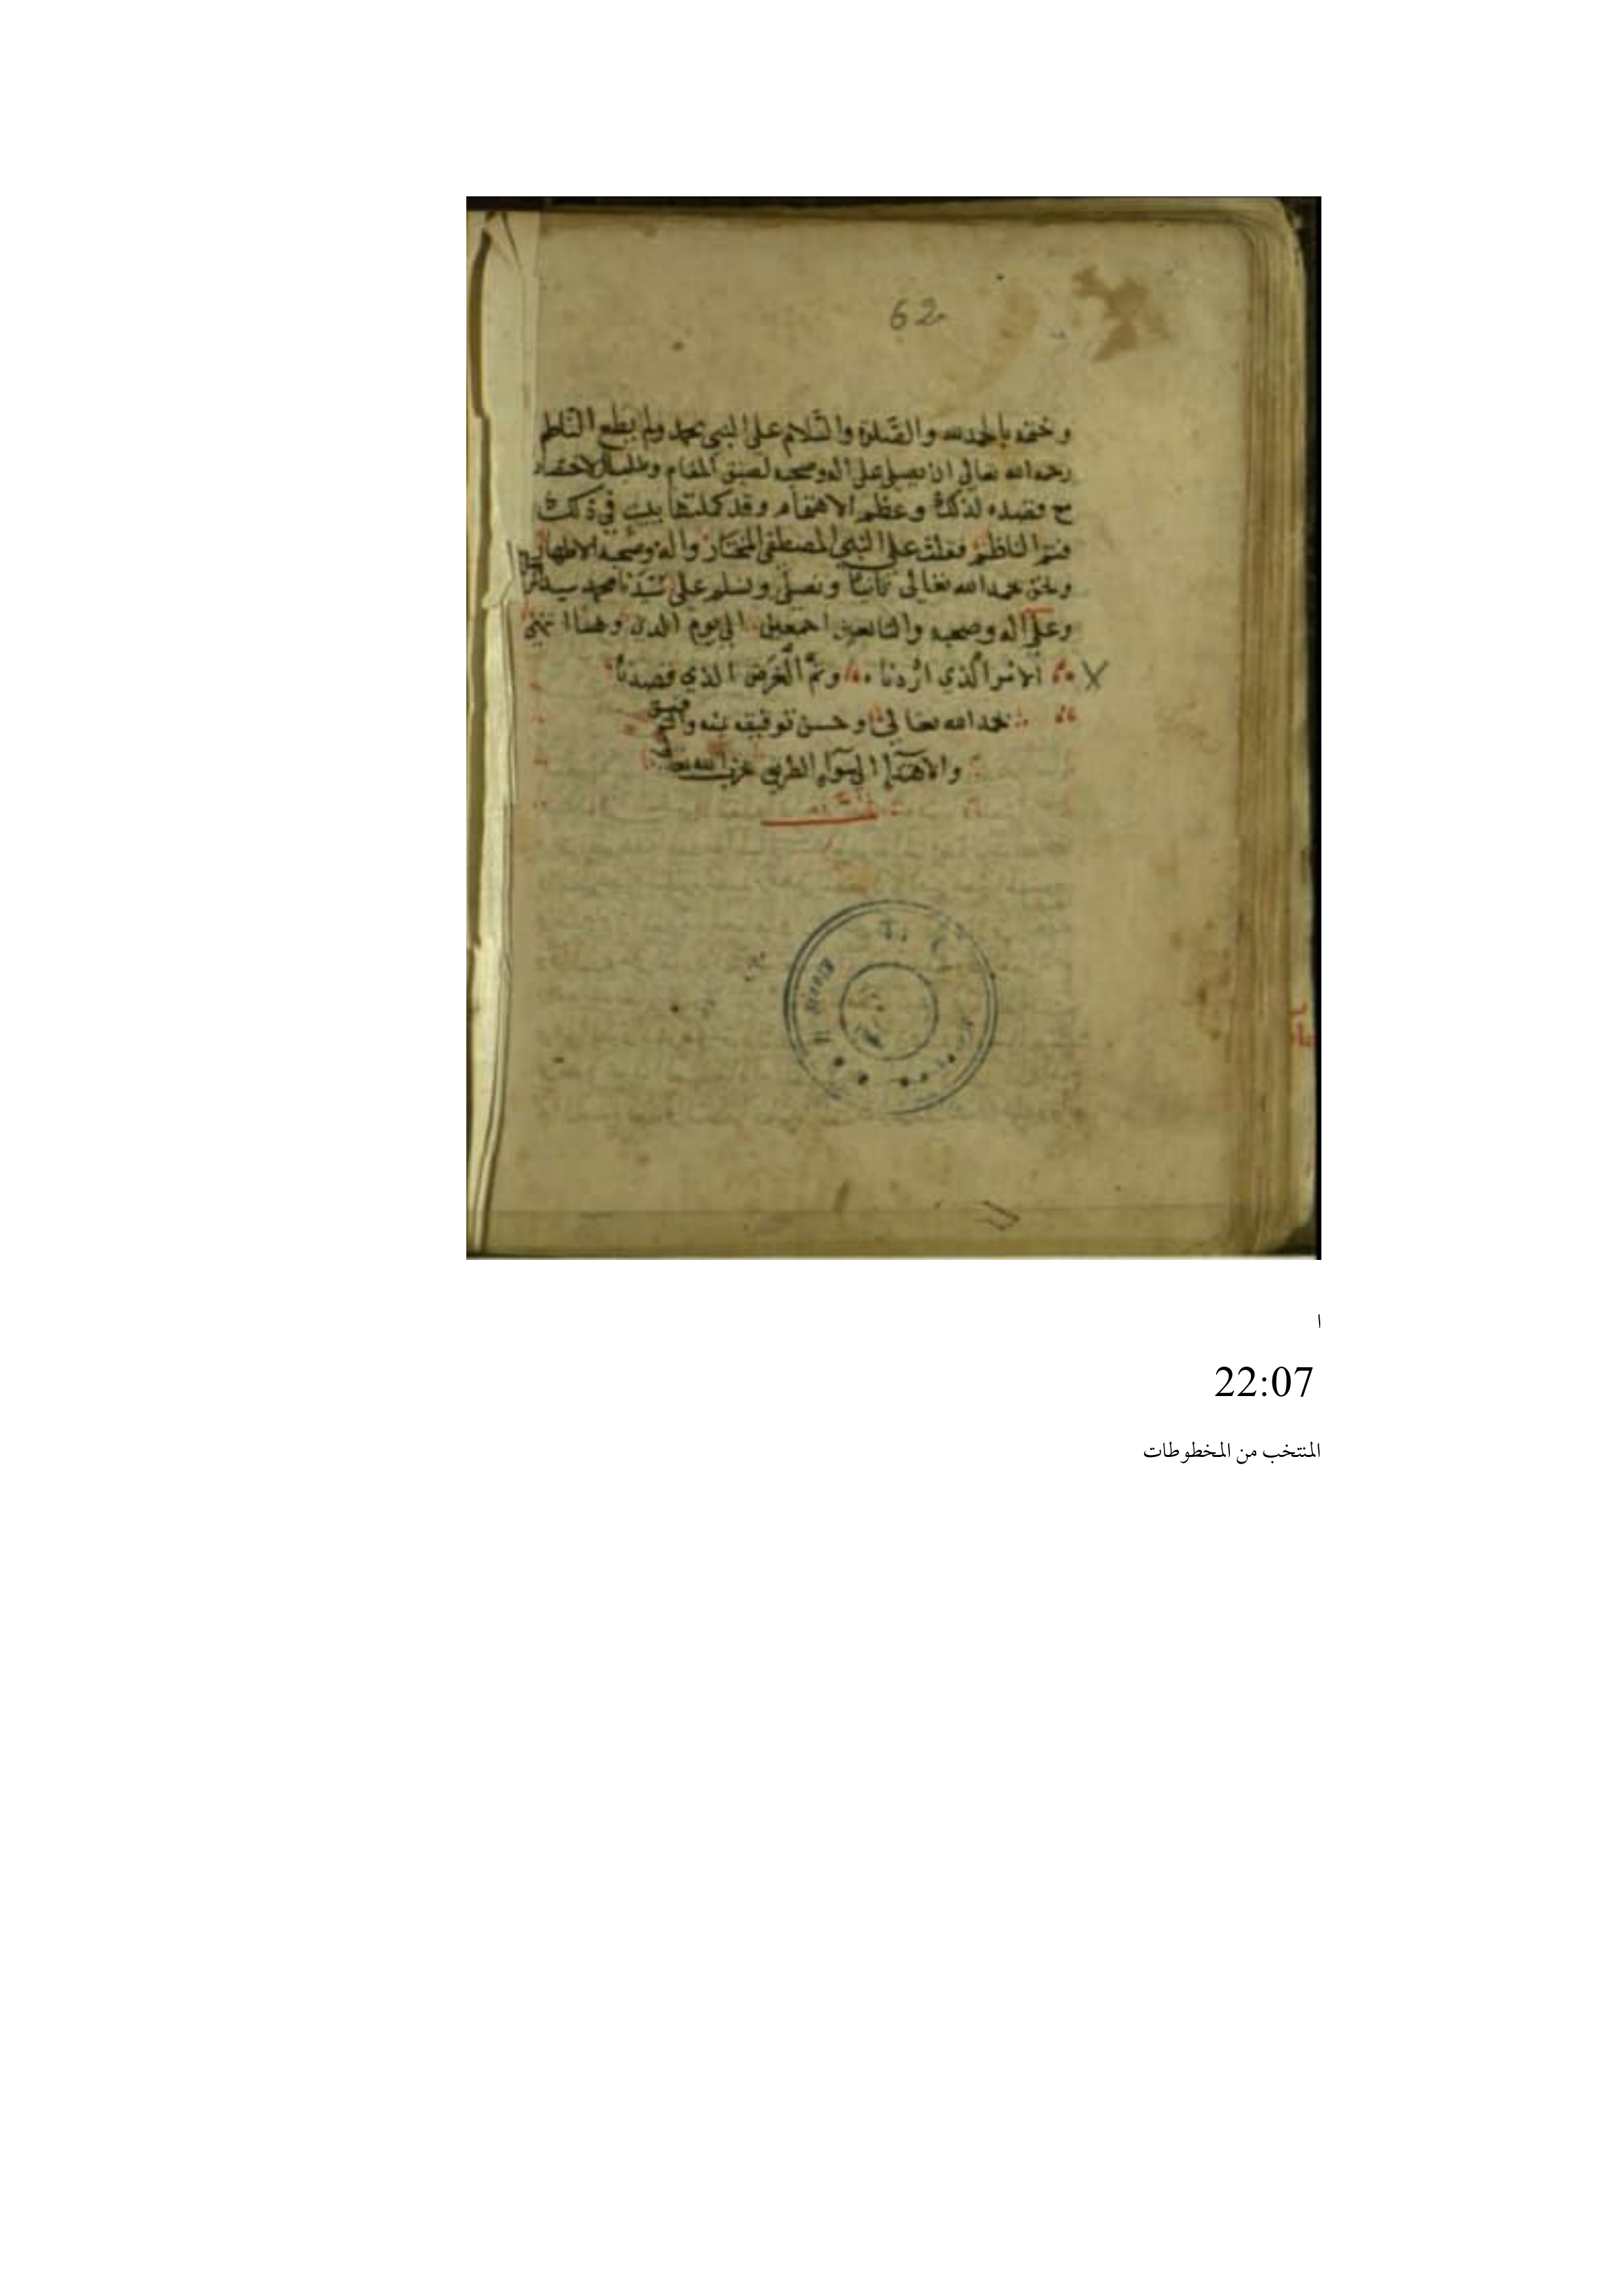 62
وختمه بالحمد لله والصَّلاة والسَّلام على النبي محمد ولم يطع النَّاظم
رحمه الله تعالى ان يصلي على اله وصحبه لضيق المقام وطلب الاختصار
مع قصده لذلك وعظم الاهتمام وقد كملتها ببيت في ذكك
فقلت على النبي المصطفى المختار واله وصحبه الاطهار
ونحن نحمد الله تعالى ثانيًا ونصلي ونسلم على سيدنا محمد سيد
وعلى اله وصحبه والتابعين اجمعين الى يوم الدين وهنا انتهى
الامر الذي اردنا وتمَّ الغرض الذي قصدنا
بحمد الله تعالى وحسن توفيقه
والاهتداء الى سواء الطريق
ا
22:07
المنتخب من المخطوطات